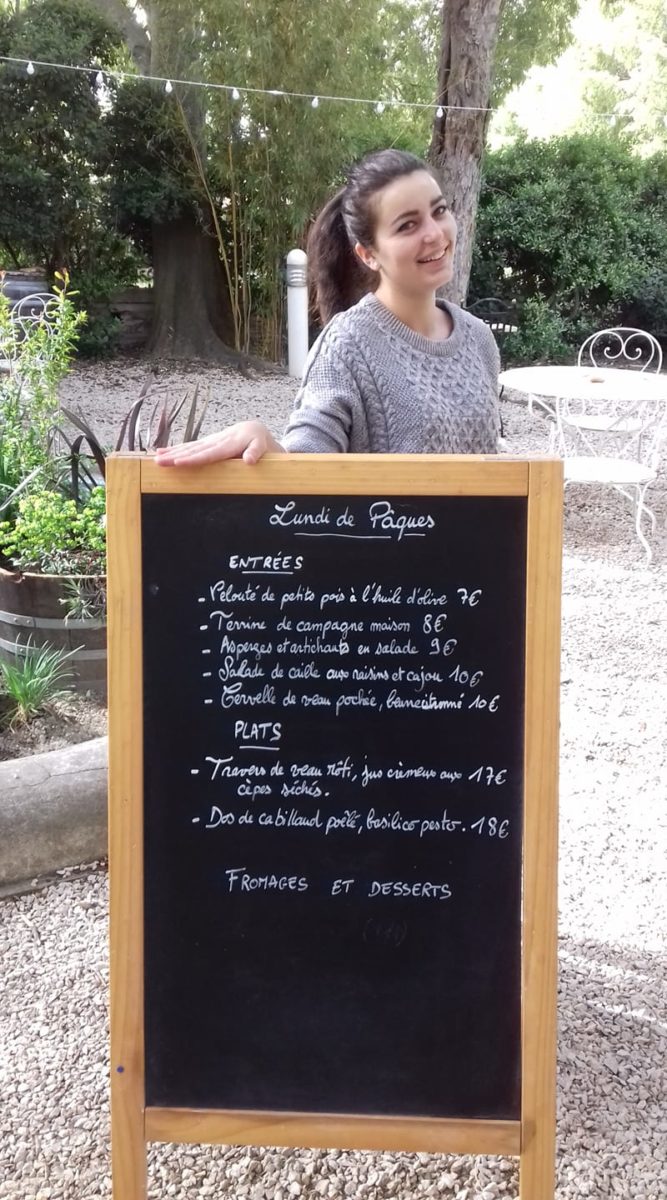 Lundi de Pâques
ENTRÉES
- Velouté de petits pois à l'huile d'olive 7€
- Terrine de campagne maison 8€
- Asperges et artichauts en salade 9€
- Salade de caille aux raisins et cajou 10€
- Cervelle de veau pochée, citronné 10€
PLATS
- Travers de veau rôti, jus crèmeux aux 17€
cèpes séchés.
- Dos de cabillaud poêlé, basilico pesto. 18€
FROMAGES ET DESSERTS